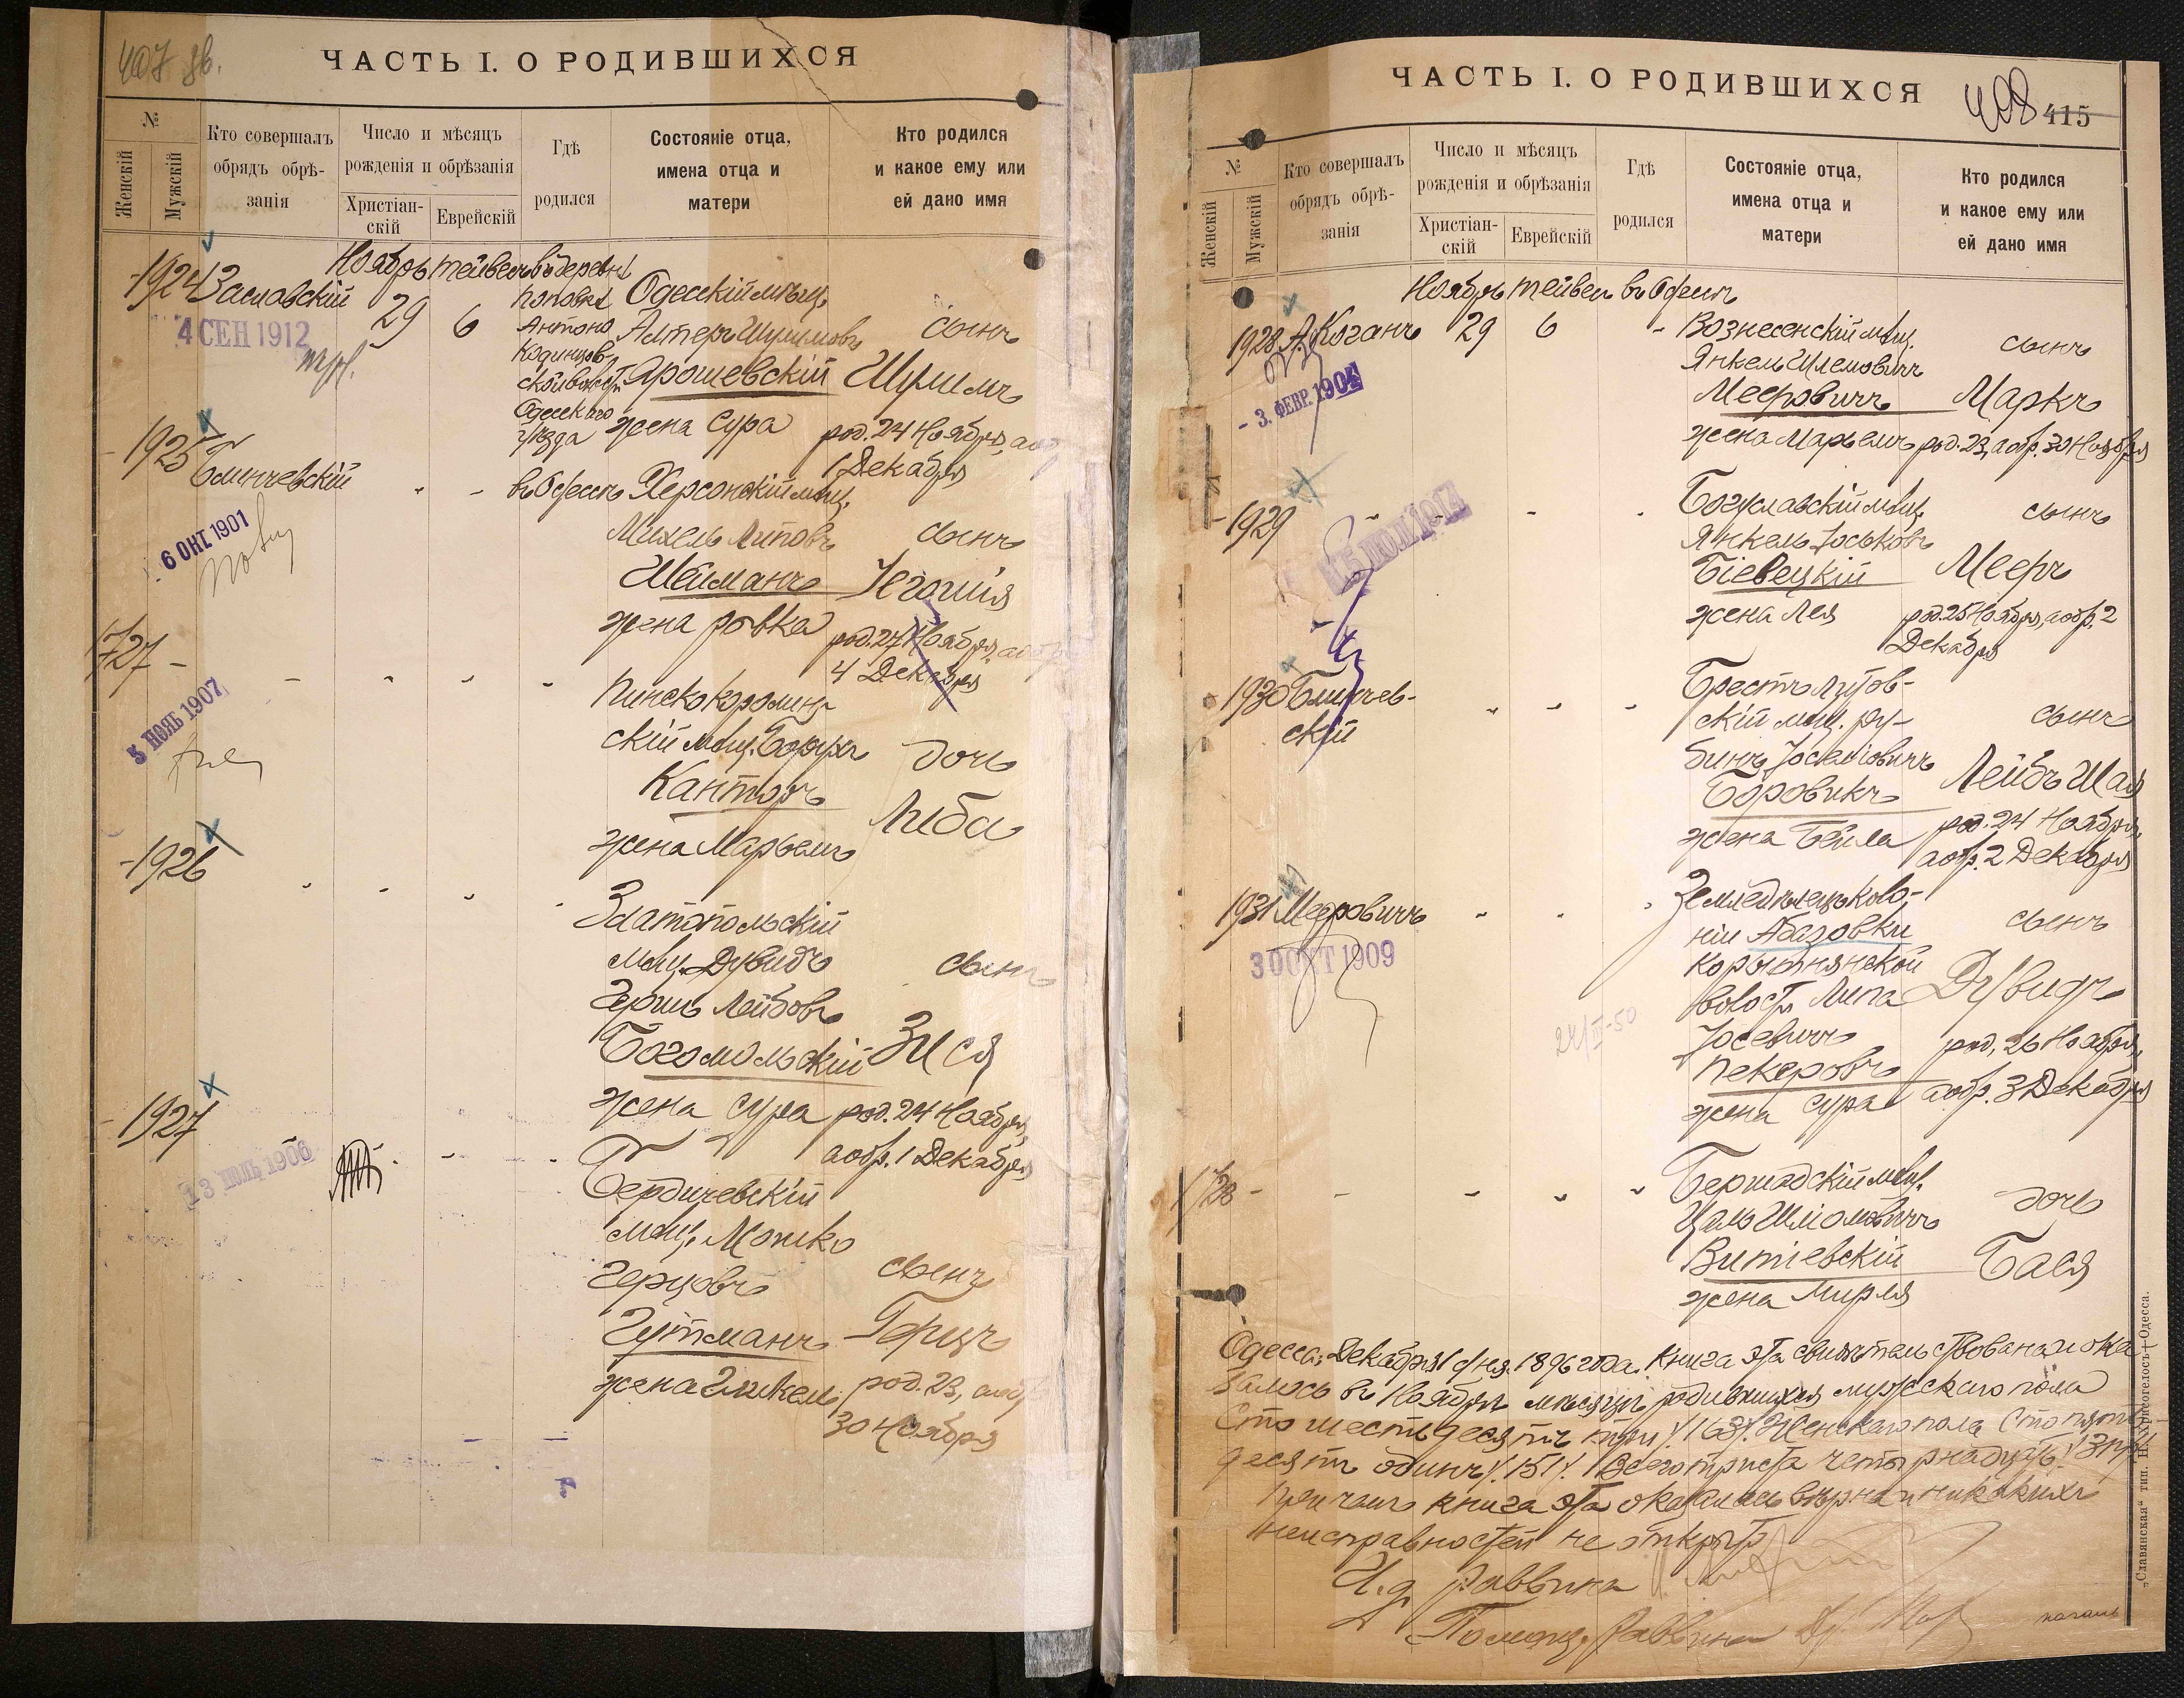 407 зв.
ЧАСТЬ I. О РОДИВШИХСЯ
№
Женскій
Мужскій
Кто совершалъ
обрядъ обрѣ-
занія
Число и мѣсяцъ
рожденія и обрѣзанія
Христіан-
скій
Еврейскій
Гдѣ
родился
Состояніе отца,
имена отца и
матери
Кто родился
и какое ему или
ей дано имя
Ноябрь тейвесъ въ деревнѣ
1924 Заславскій 29 6
Поповкѣ
Антоно
Кодинцов-
ской волости
Одесскаго
уѣзда
Одесскій мѣщ.
Алтеръ Шулимовъ
Ярошевскій
жена Сура
сынъ
Шулимъ
род. 24 Ноября, а обр
1 Декабря
4 СЕН 1912
1925 Блинчевскій " - въ Одессѣ
Херсонскій мѣщ.
Михель Липовъ
Шейманъ
жена Ривка
сынъ
Иегошія
род. 27 Ноября, а обр
4 Декабря
6 ОКТ 1901
1727 -
Пинскокаролин-
скій мѣщ. Борухъ
Канторъ
жена Марьемъ
дочь
Либа
5 НОЯБ 1907
1926
Златопольскій
мѣщ. Дувидъ
Гершъ Лейбовъ
Богомольскій
жена Сура
сынъ
Зися
род. 24 Ноября,
а обр. 1 Декабря
1927
Бердичевскій
мѣщ. Мошко
Герцовъ
Гутманъ
жена Гликель
сынъ
Герцъ
род. 23, а обр
30 Ноября
13 1906
408 415
ЧАСТЬ I. О РОДИВШИХСЯ
№
Женскій
Мужскій
Кто совершалъ
обрядъ обрѣ-
занія
Число и мѣсяцъ
рожденія и обрѣзанія
Христіан-
скій
Еврейскій
Гдѣ
родился
Состояніе отца,
имена отца и
матери
Кто родился
и какое ему или
ей дано имя
Ноябрь тейвесъ въ Одессѣ
1928 А. Коганъ 29 6 -
Вознесенскій мѣщ.
Янкель Шлемовичъ
Мееровичъ
жена Марьемъ
сынъ
Маркъ
род. 23, а обр. 30 Ноября
- 3. ФЕВР. 190
1929
Богуславскій мѣщ.
Янкель Іоськовъ
Біевецкій
жена Лея
сынъ
Мееръ
род. 25 Ноября, а обр. 2
Декабря
1914
1930 Блинчев-
скій
Брестълитов-
скій мѣщ. Ру-
бинъ Іоселіовичъ
Боровикъ
жена Бейла
сынъ
Лейбъ Шая
род. 24 Ноября,
а обр. 2 Декабря
1931 Мееровичъ
Земледѣлецъ коло-
ніи Абазовки
волости Липа
Іосевичъ
Пекеровъ
жена Сура
сынъ
Дувидъ
род. 26 Ноября,
а обр. 3 Декабря
30 ОКТ 1909
24/II-50
1728 -
Бершадскій мѣщ.
Цаль Шліомовичъ
Витіевскій
жена Мирля
дочь
Бася
Одесса, Декабря 1 дня 1896 года. Книга эта свидѣтельствована и ока-
залось въ Ноябрѣ мѣсяцѣ родившихся мужскаго пола
Сто шестьдесятъ три /163/. Женскаго пола Сто пять-
десятъ одинъ /151/. Всего триста четырнадцать
причемъ книга эта оказалась вѣрна и никакихъ
неисправностей не открыто
И. д. Раввина
Помощ. Раввина
„Славянская“ тип. Н. Хрисогелосъ—Одесса.